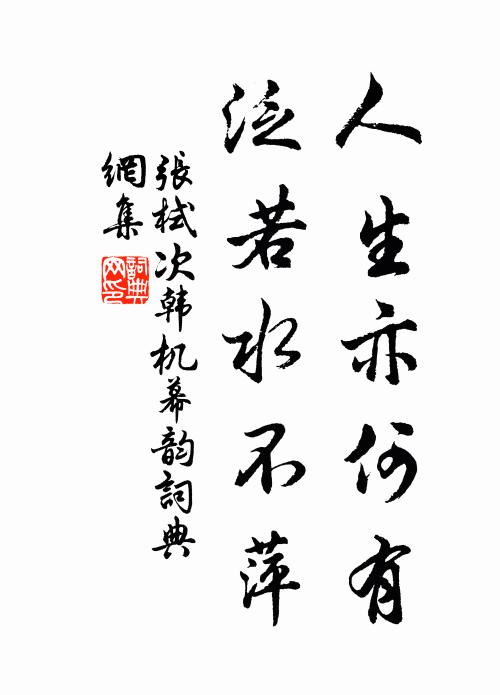 人生亦何有
泛若水不萍
張栻次韩机幕韵詞典
網集
詞典
网印